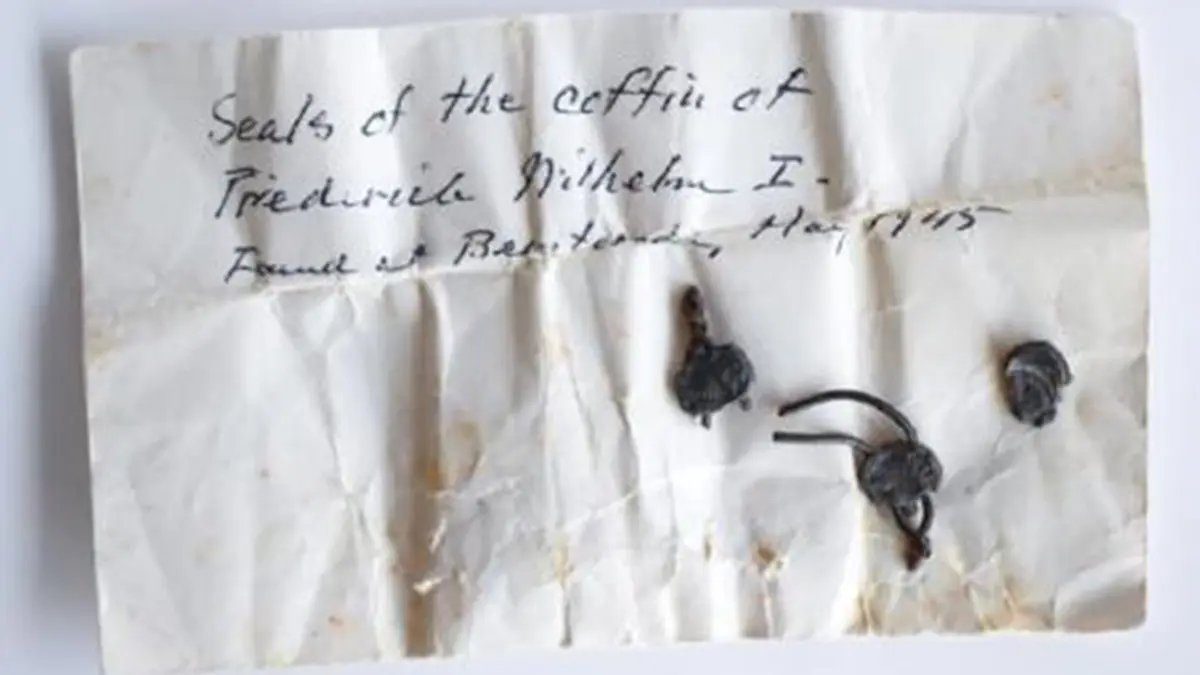 Seals of the coffin of
Friederich Wilhelm I.
Found at May 1945